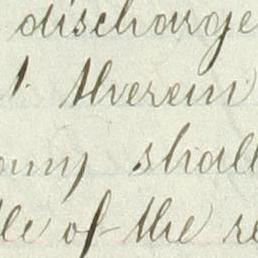 discharge
therein
any shall
of the re